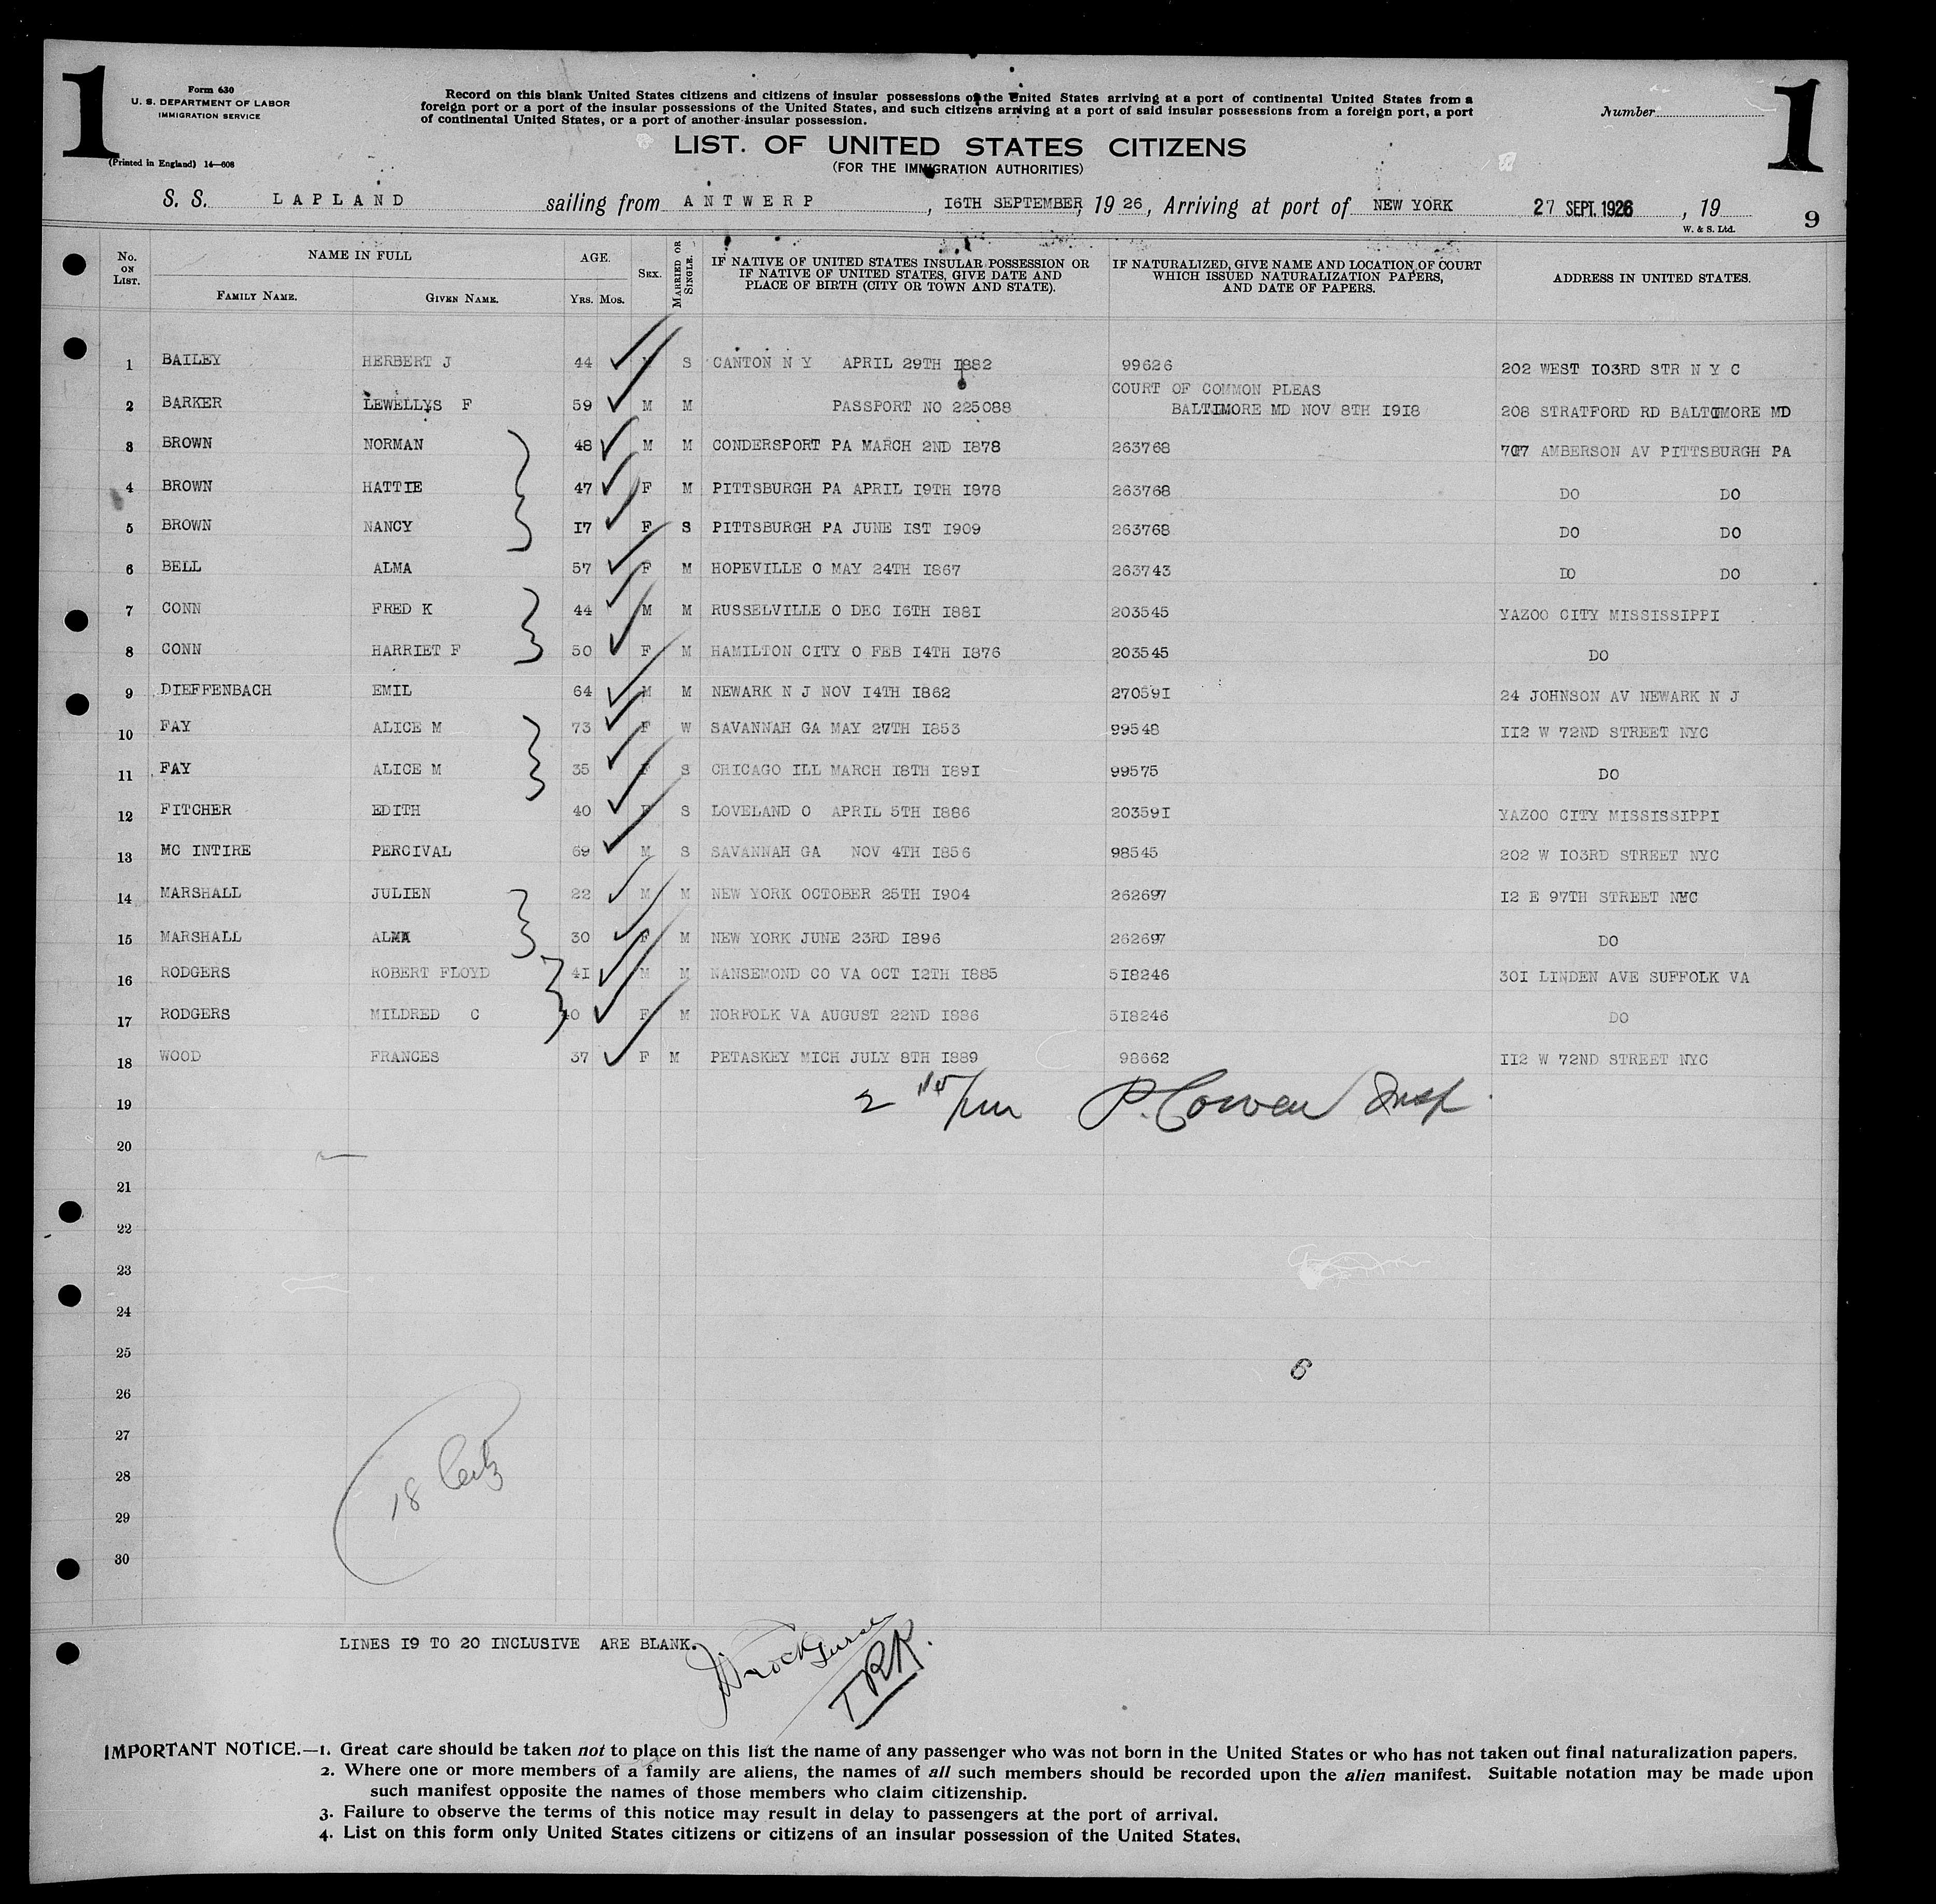 1
Form 630
U. S. DEPARTMENT OF LABOR
IMMIGRATION SERVICE
(Printed in England) 14—608
Record on this blank United States citizens and citizens of insular possessions of the United States arriving at a port of continental United States from a
foreign port or a port of the insular possessions of the United States, and such citizens arriving at a port of said insular possessions from a foreign port, a port
of continental United States, or a port of another insular possession.
Number
1
LIST. OF UNITED STATES CITIZENS
(FOR THE IMMIGRATION AUTHORITIES)
S. S. LAPLAND sailing from ANTWERP, 16TH SEPTEMBER, 19 26, Arriving at port of NEW YORK 27 SEPT. 1926, 19
W. & S. Ltd.
9
No. ON LIST. NAME IN FULL FAMILY NAME. GIVEN NAME. AGE. YRS. MOS. SEX. MARRIED OR SINGLE. IF NATIVE OF UNITED STATES INSULAR POSSESSION OR IF NATIVE OF UNITED STATES, GIVE DATE AND PLACE OF BIRTH (CITY OR TOWN AND STATE). IF NATURALIZED, GIVE NAME AND LOCATION OF COURT WHICH ISSUED NATURALIZATION PAPERS, AND DATE OF PAPERS. ADDRESS IN UNITED STATES.
1 BAILEY HERBERT J 44 M S CANTON N Y APRIL 29TH 1882 99626 202 WEST 103RD STR N Y C
COURT OF COMMON PLEAS
2 BARKER LEWELLYS F 59 M M PASSPORT NO 225088 BALTIMORE MD NOV 8TH 1918 208 STRATFORD RD BALTIMORE MD
3 BROWN NORMAN 48 M M CONDERSPORT PA MARCH 2ND 1878 263768 707 AMBERSON AV PITTSBURGH PA
4 BROWN HATTIE 47 F M PITTSBURGH PA APRIL 19TH 1878 263768 DO DO
5 BROWN NANCY 17 F S PITTSBURGH PA JUNE 1ST 1909 263768 DO DO
6 BELL ALMA 57 F M HOPEVILLE O MAY 24TH 1867 263743 DO DO
7 CONN FRED K 44 M M RUSSELVILLE O DEC 16TH 1881 203545 YAZOO CITY MISSISSIPPI
8 CONN HARRIET F 50 F M HAMILTON CITY O FEB 14TH 1876 203545 DO
9 DIEFFENBACH EMIL 64 M M NEWARK N J NOV 14TH 1862 270591 24 JOHNSON AV NEWARK N J
10 FAY ALICE M 73 F W SAVANNAH GA MAY 27TH 1853 99548 112 W 72ND STREET NYC
11 FAY ALICE M 35 F S CHICAGO ILL MARCH 18TH 1891 99575 DO
12 FITCHER EDITH 40 F S LOVELAND O APRIL 5TH 1886 203591 YAZOO CITY MISSISSIPPI
13 MC INTIRE PERCIVAL 69 M S SAVANNAH GA NOV 4TH 1856 98545 202 W 103RD STREET NYC
14 MARSHALL JULIEN 22 M M NEW YORK OCTOBER 25TH 1904 262697 12 E 97TH STREET NYC
15 MARSHALL ALMA 30 F M NEW YORK JUNE 23RD 1896 262697 DO
16 RODGERS ROBERT FLOYD 41 M M NANSEMOND CO VA OCT 12TH 1885 518246 301 LINDEN AVE SUFFOLK VA
17 RODGERS MILDRED C 40 F M NORFOLK VA AUGUST 22ND 1886 518246 DO
18 WOOD FRANCES 37 F M PETASKEY MICH JULY 8TH 1889 98662 112 W 72ND STREET NYC
19 P. Cowen Insp.
20
21
22
23
24
25
6
26
27
28
18
29
30
LINES 19 TO 20 INCLUSIVE ARE BLANK.
TRK.
IMPORTANT NOTICE.—1. Great care should be taken not to place on this list the name of any passenger who was not born in the United States or who has not taken out final naturalization papers.
2. Where one or more members of a family are aliens, the names of all such members should be recorded upon the alien manifest. Suitable notation may be made upon
such manifest opposite the names of those members who claim citizenship.
3. Failure to observe the terms of this notice may result in delay to passengers at the port of arrival.
4. List on this form only United States citizens or citizens of an insular possession of the United States.